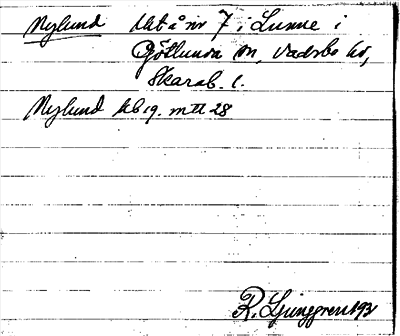 Nylund Utå nr 7 i Lunne i
Götlunda sn, Vadsbo hd,
Skarab. l.
Nylund Ub 19. m tl 28
R. Ljunggren 192